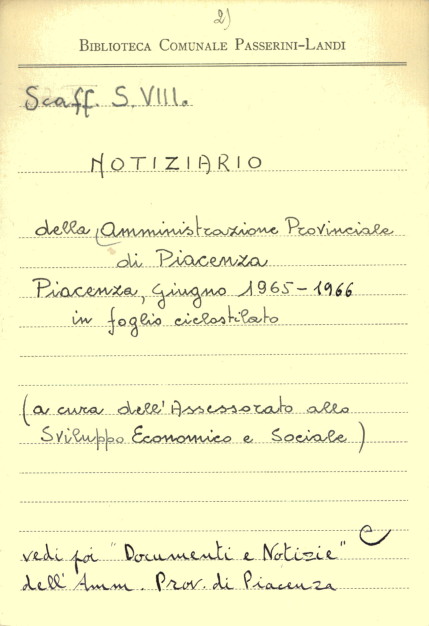 2)
BIBLIOTECA COMUNALE PASSERINI-LANDI
Scaff. S. VIII.
NOTIZIARIO
della Amministrazione Provinciale
di Piacenza
Piacenza, giugno 1965-1966
in foglio ciclostilato
(a cura dell'Assessorato allo
Sviluppo Economico e Sociale)
vedi poi "Documenti e Notizie"
dell'Amm. Prov. di Piacenza